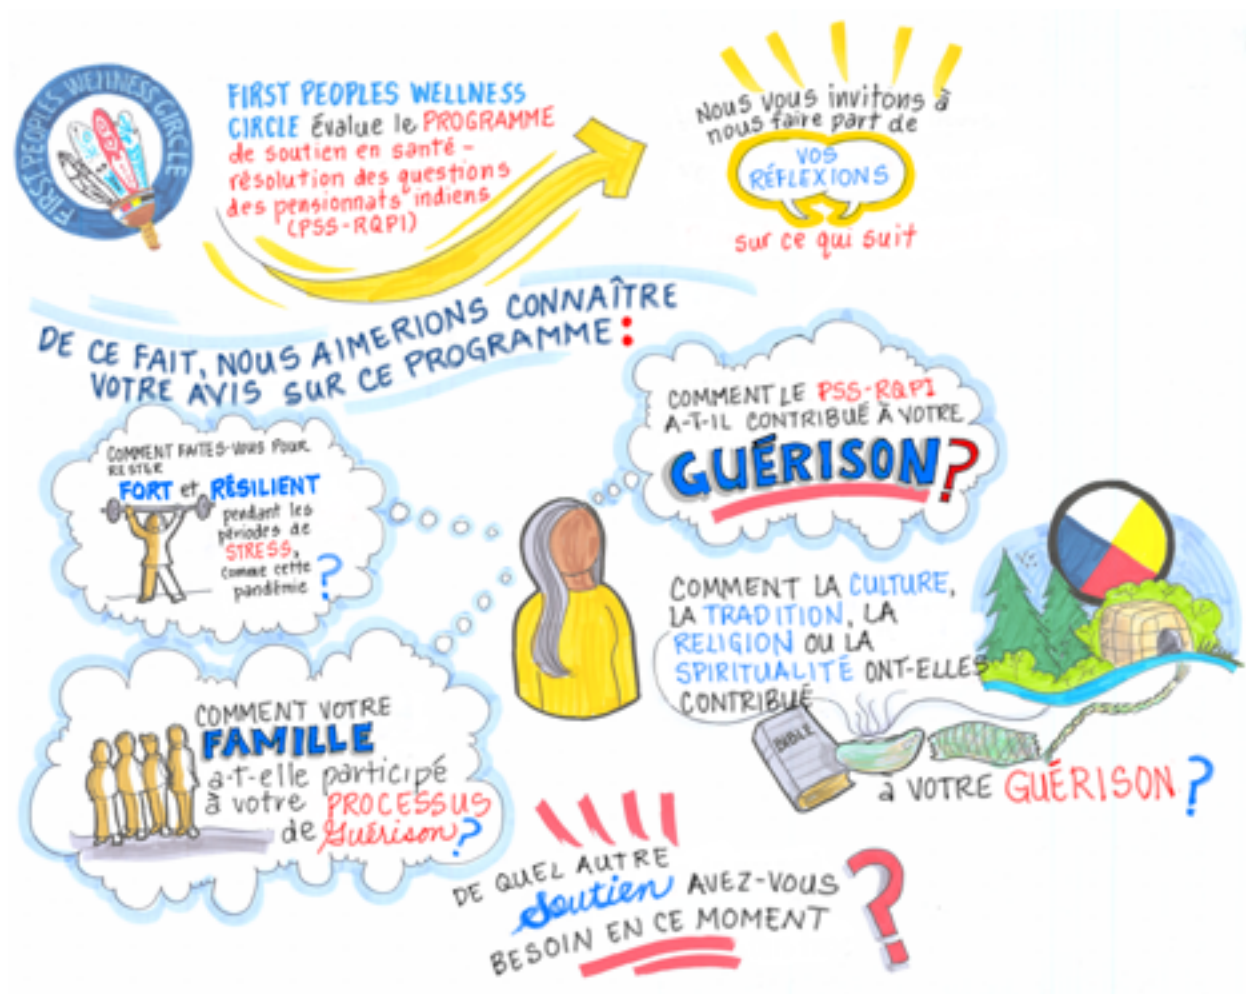 FIRST PEOPLES WELLNESS CIRCLE
FIRST PEOPLES WELLNESS
CIRCLE évalue le PROGRAMME
de soutien en santé –
résolution des questions
des pensionnats indiens
(PSS-RQPI)
Nous vous invitons à
nous faire part de
VOS
RÉFLEXIONS
sur ce qui suit
DE CE FAIT, NOUS AIMERIONS CONNAÎTRE
VOTRE AVIS SUR CE PROGRAMME :
COMMENT FAITES-VOUS POUR
RESTER
FORT et RÉSILIENT
pendant les
périodes de
STRESS,
comme cette
pandémie ?
COMMENT LE PSS-RQPI
A-T-IL CONTRIBUÉ À VOTRE
GUÉRISON ?
COMMENT LA CULTURE,
LA TRADITION, LA
RELIGION OU LA
SPIRITUALITÉ ONT-ELLES
CONTRIBUÉ
BIBLE
à VOTRE GUÉRISON ?
COMMENT VOTRE
FAMILLE
a-t-elle participé
à votre PROCESSUS
de Guérison ?
DE QUEL AUTRE
Soutien AVEZ-VOUS
BESOIN EN CE MOMENT ?